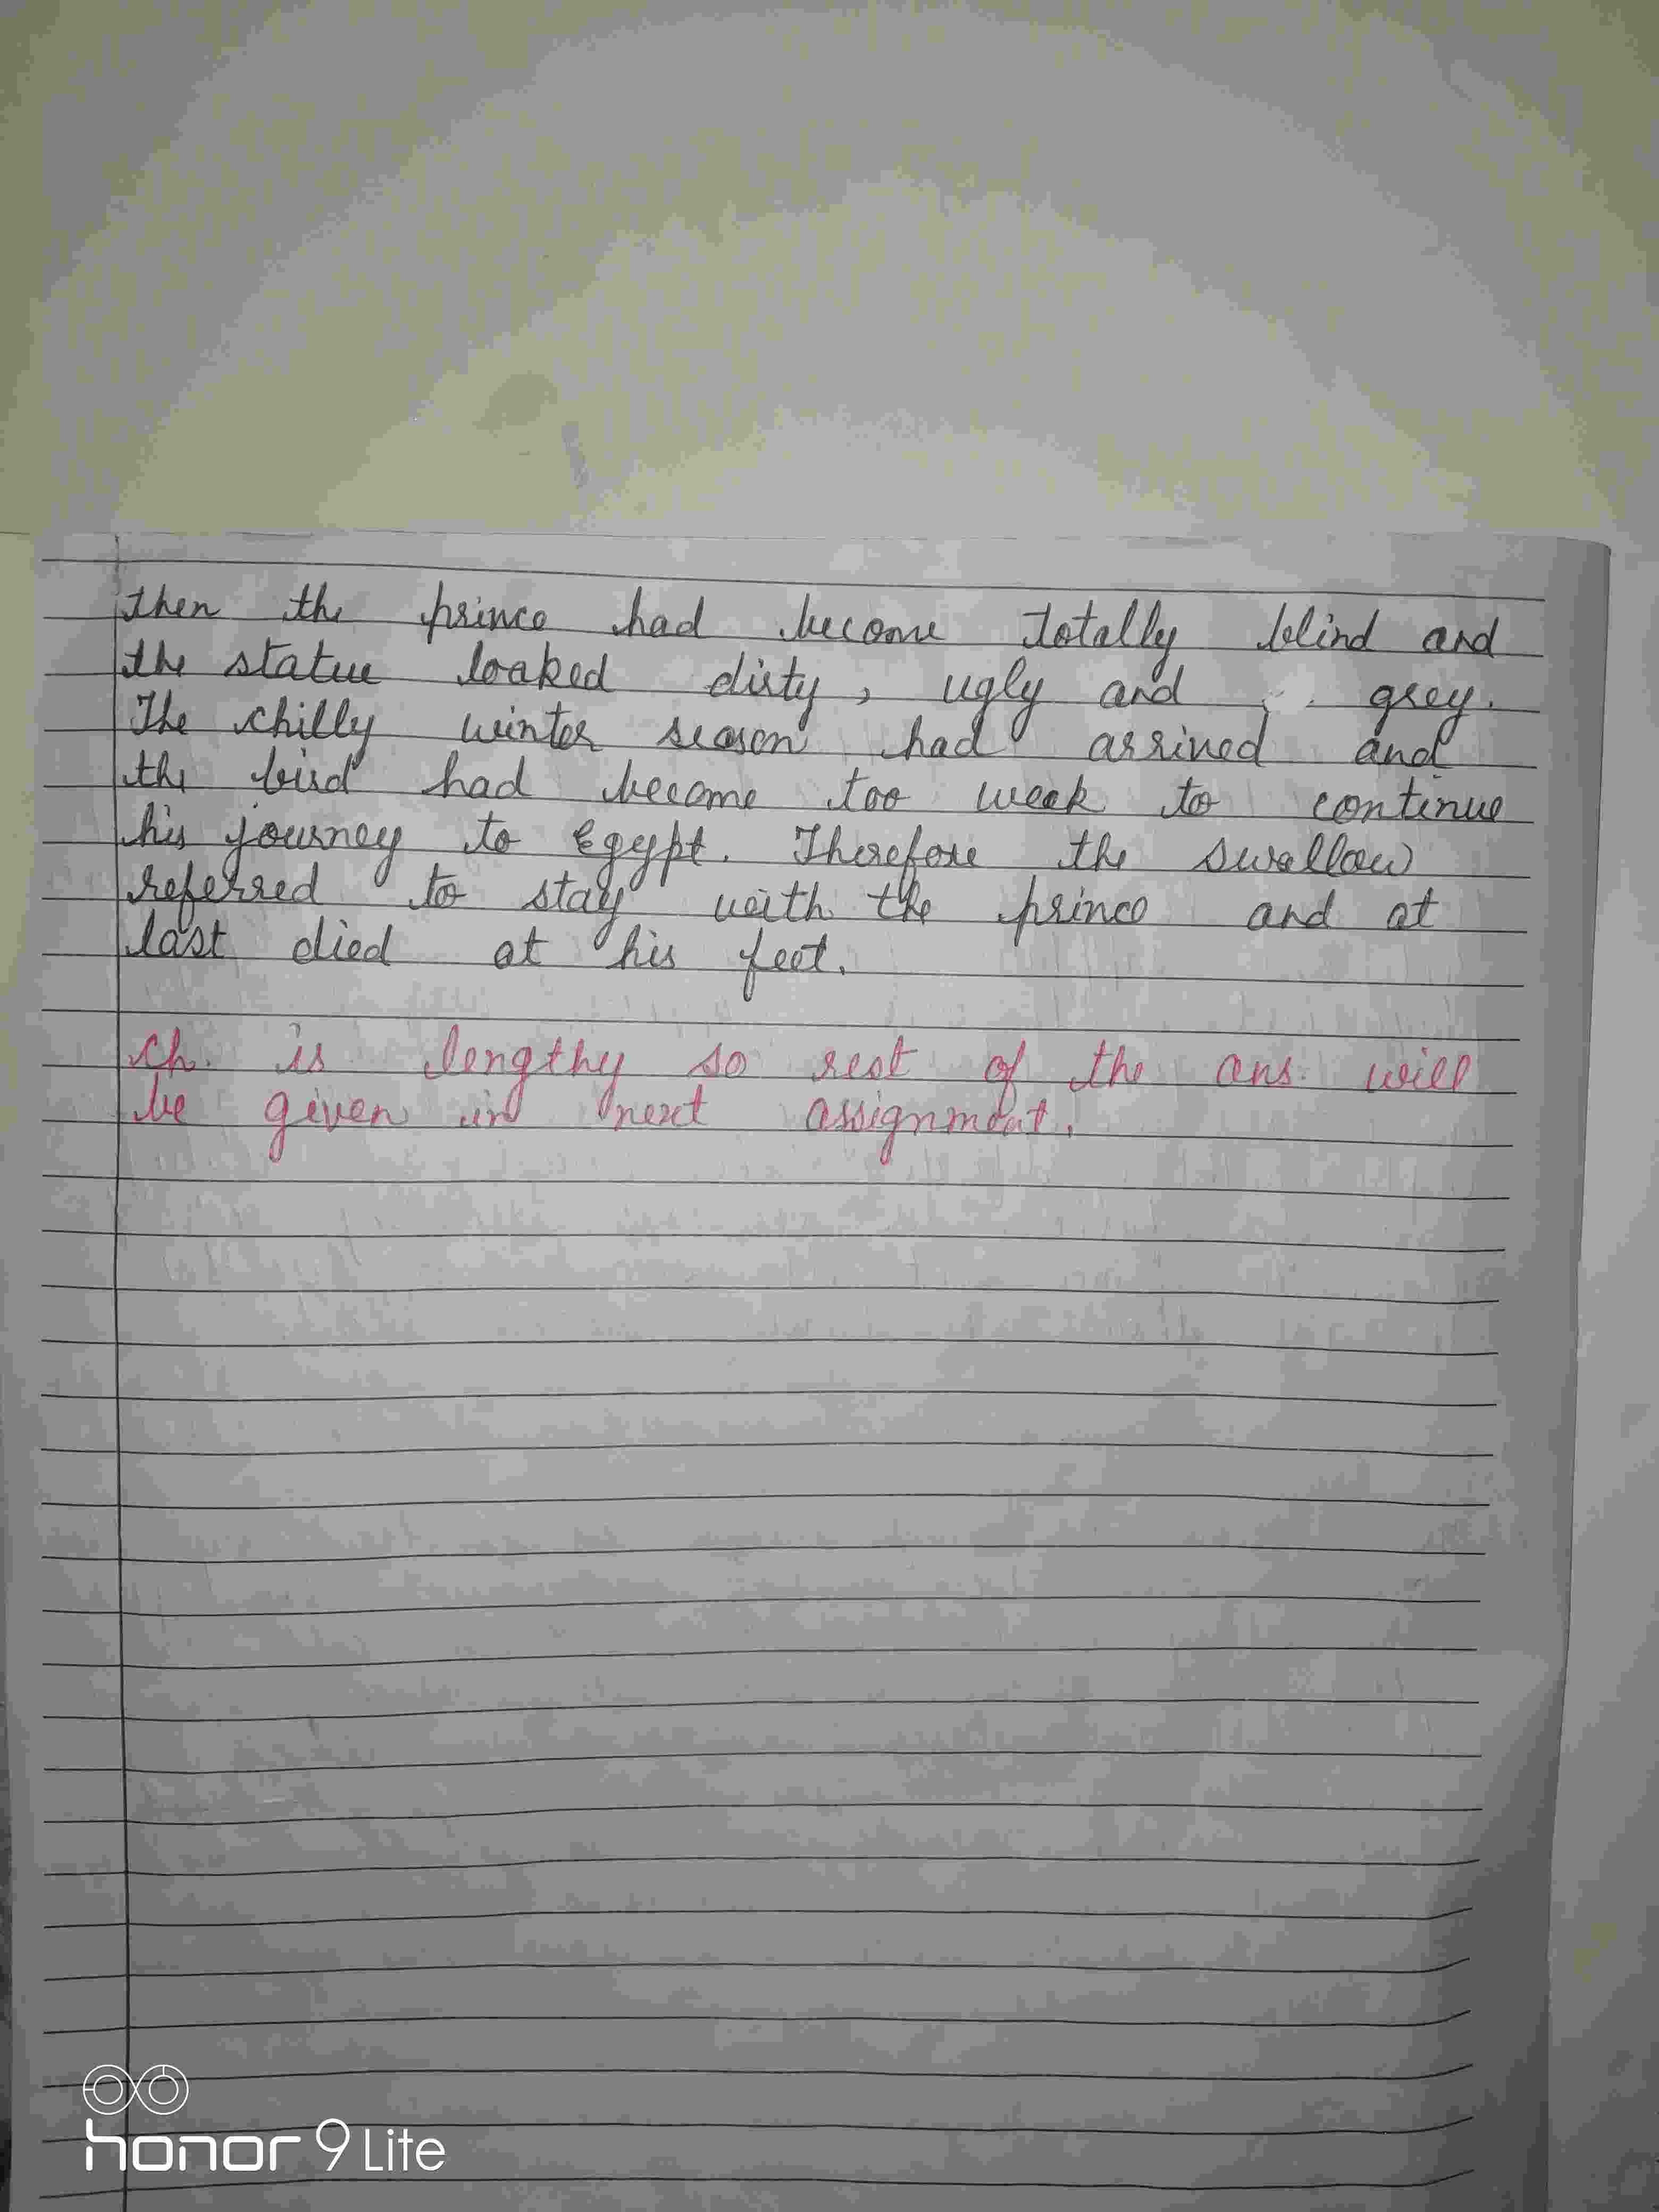 then the prince had become totally blind and
the statue looked dirty, ugly and grey.
The chilly winter season had arrived and
the bird had become too weak to continue
his journey to Egypt. Therefore the swallow
referred to stay with the prince and at
last died at his feet.
ch. is lengthy so rest of the ans. will
be given in next assignment.
honor 9 Lite